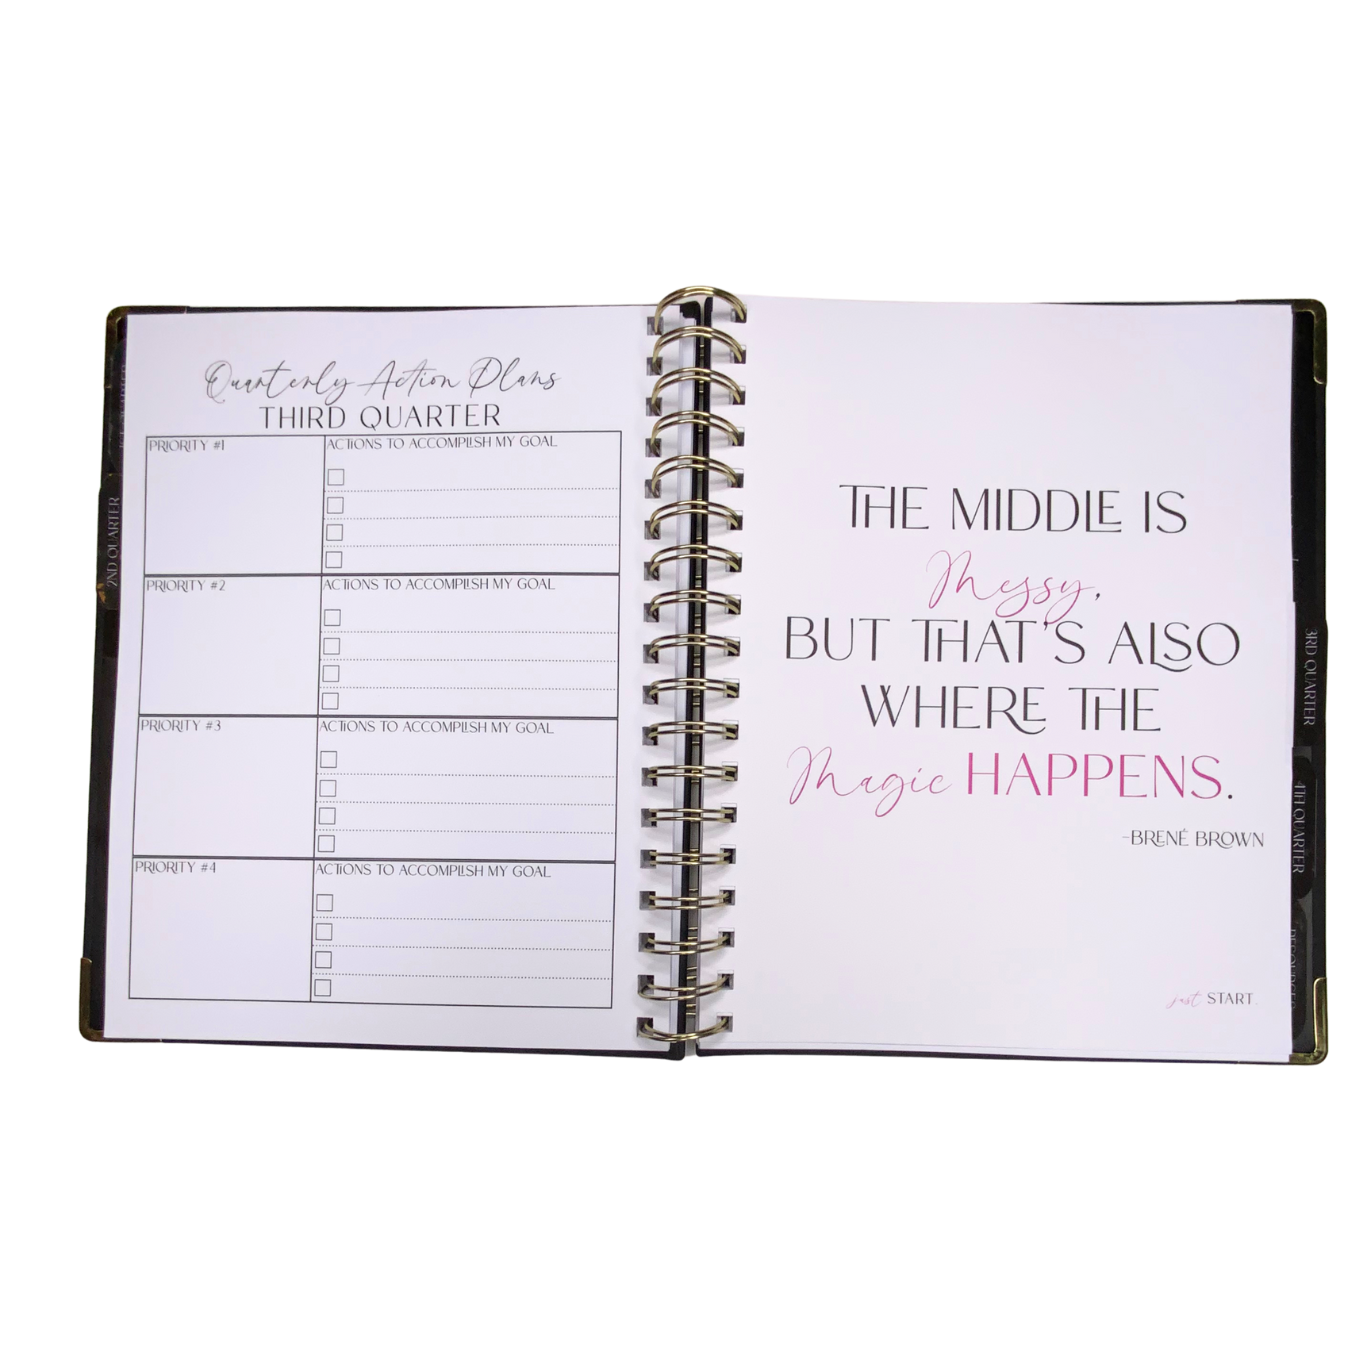 Quarterly Action Plans
THIRD QUARTER
PRIORITY #1
ACTIONS TO ACCOMPLISH MY GOAL
PRIORITY #2
ACTIONS TO ACCOMPLISH MY GOAL
PRIORITY #3
ACTIONS TO ACCOMPLISH MY GOAL
PRIORITY #4
ACTIONS TO ACCOMPLISH MY GOAL
2ND QUARTER
THE MIDDLE IS
Messy,
BUT THAT'S ALSO
WHERE THE
Magic HAPPENS.
-BRENÉ BROWN
just START.
3RD QUARTER
4TH QUARTER
RESOURCES